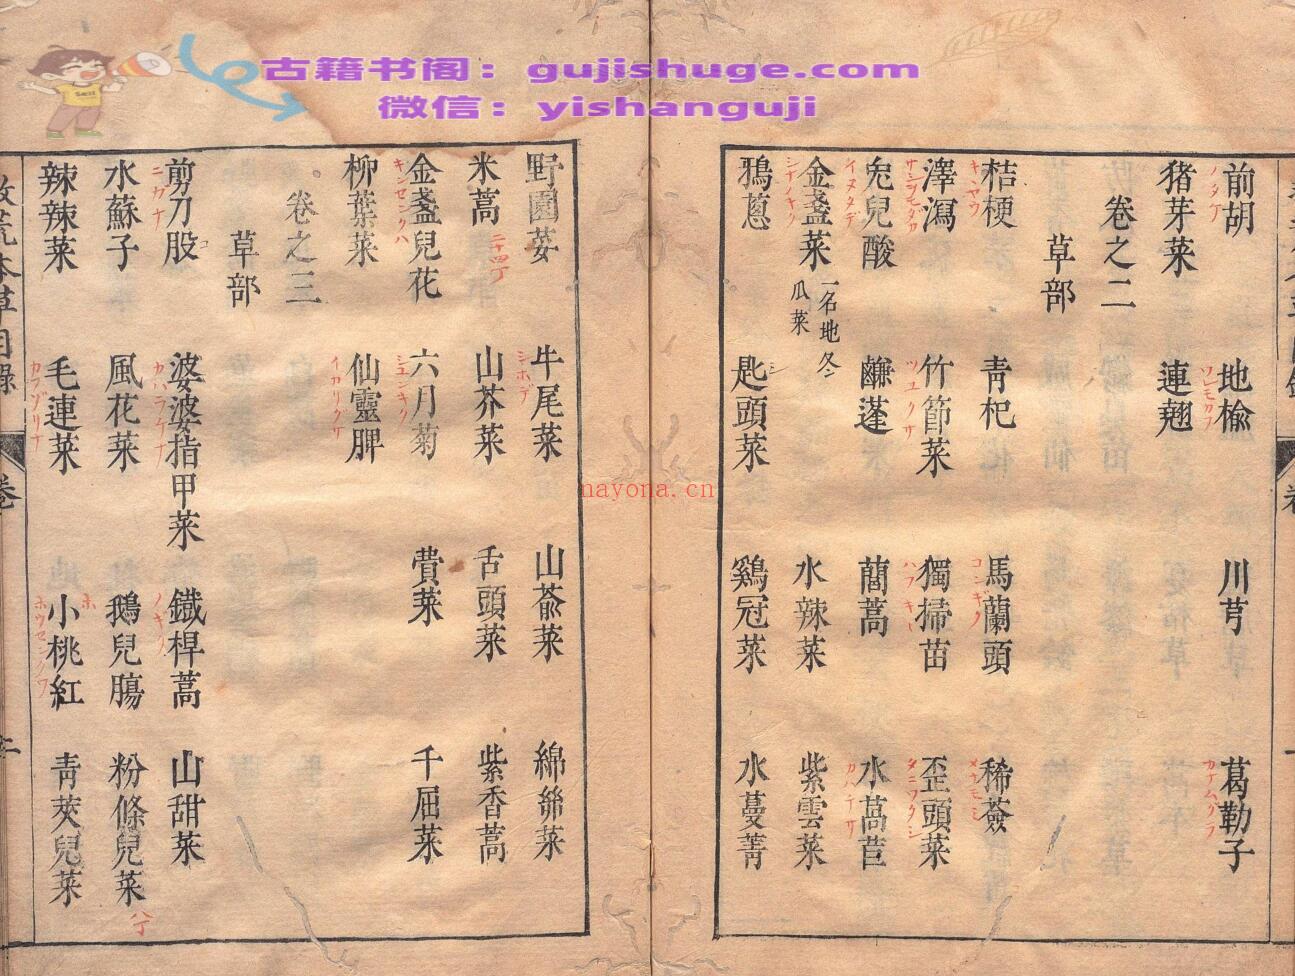 古籍书阁：gujishuge.com
微信：yishanguji
Sall
前胡 地榆 川芎 葛勒子
猪芽菜 連翹
卷之二
草部
桔梗 青杞 馬蘭頭 稀薟
澤瀉 竹節菜 獨掃苗 歪頭菜
兔兒酸 鹻蓬 蕳蒿 水萵苣
金盞菜 一名地冬瓜菜 水辣菜 紫雲菜
鴉葱 匙頭菜 鷄冠菜 水蔓菁
野園荽 牛尾菜 山萮菜 綿絲菜
米蒿 山芥菜 舌頭菜 紫香蒿
金盞兒花 六月菊 費菜 千屈菜
柳葉菜 仙靈脾
卷之三
草部
剪刀股 婆婆指甲菜 鐵桿蒿 山甜菜
水蘇子 風花菜 鵝兒腸 粉條兒菜
辣辣菜 毛連菜 小桃紅 青莢兒菜
荒本草目錄 卷 二
nayona.cn